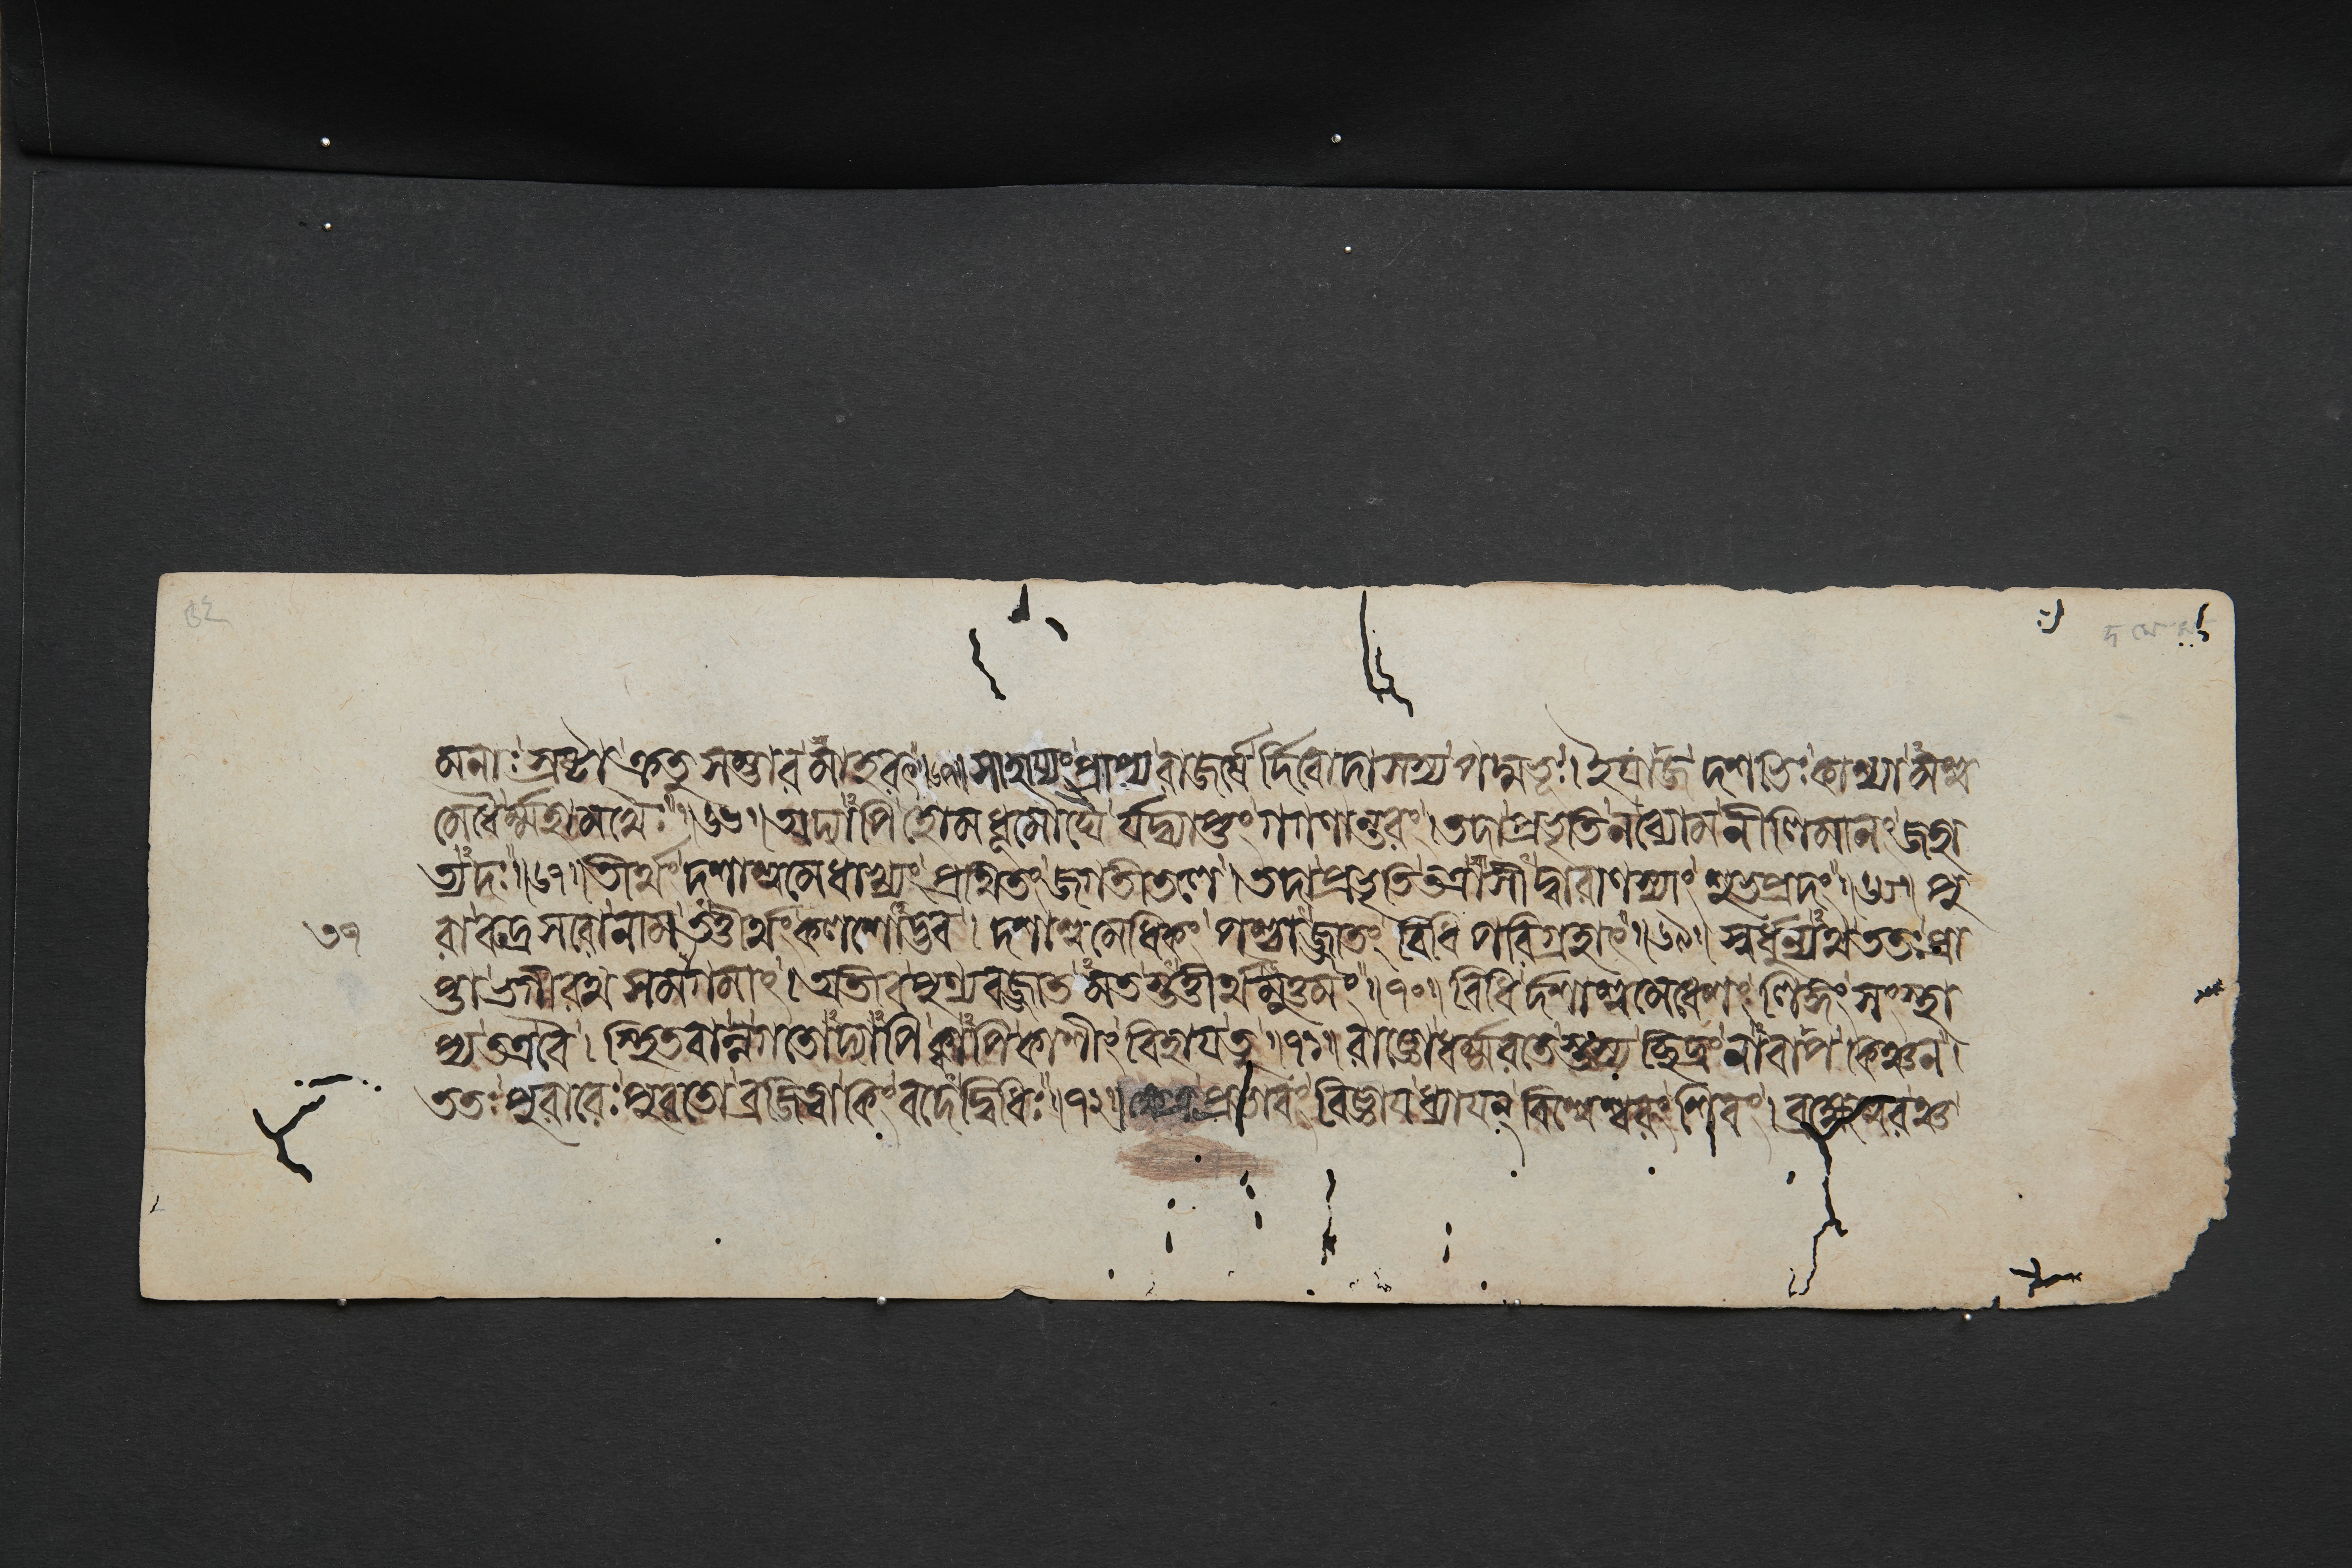 মনাঃ স্রষ্টা ক্রতুসম্ভারমাহরৎ॥৬৫॥ সাহায্যং প্রাপ্য রাজর্ষের্দিবোদাসস্য পদ্মভূঃ। ইযাজ দশভিঃ কাশ্যামশ্ব
মেধৈর্ম্মহামখৈঃ॥৬৬॥ অদ্যাপি হোমধূমৌঘৈর্যদ্ব্যাপ্তং গগণান্তরং। তদাপ্রভৃতি ন ব্যোম নীলিমানং জহা
ত্যদঃ॥৬৭॥ তীর্থং দশাশ্বমেধাখ্যং প্রথিতং জগতীতলে। তদাপ্রভৃতি তত্রাসীদ্বারাণস্যাং শুভপ্রদং॥৬৮॥ পু
রা রুদ্রসরো নাম তত্তীর্থং কলশোদ্ভব। দশাশ্বমেধিকং পশ্চাজ্জাতং বিধিপরিগ্রহাৎ॥৬৯॥ স্বর্ধুন্যথ ততঃ প্রা
প্তা ভগীরথসমাগমাৎ। অতীব পুণ্যবজ্জাতমতস্তত্তীর্থমুত্তমং॥৭০॥ বিধির্দশাশ্বমেধেশং লিঙ্গং সংস্থা
প্য তত্র বৈ। স্থিতবান্ন গতোদ্যাপি ক্বাপি কাশীং বিহায তু॥৭১॥ রাজ্ঞো ধর্ম্মরতেস্তস্য চ্ছিদ্রং নাবাপ কিঞ্চন।
ততঃ পুরারেঃ পুরতো ব্রজিত্বা কিং বদেদ্বিধিঃ॥৭২॥ ক্ষেত্রপ্রভাবং বিজ্ঞায ধ্যাযন্ বিশ্বেশ্বরং শিবং। ব্রহ্মেশ্বরঞ্চ
৩৭